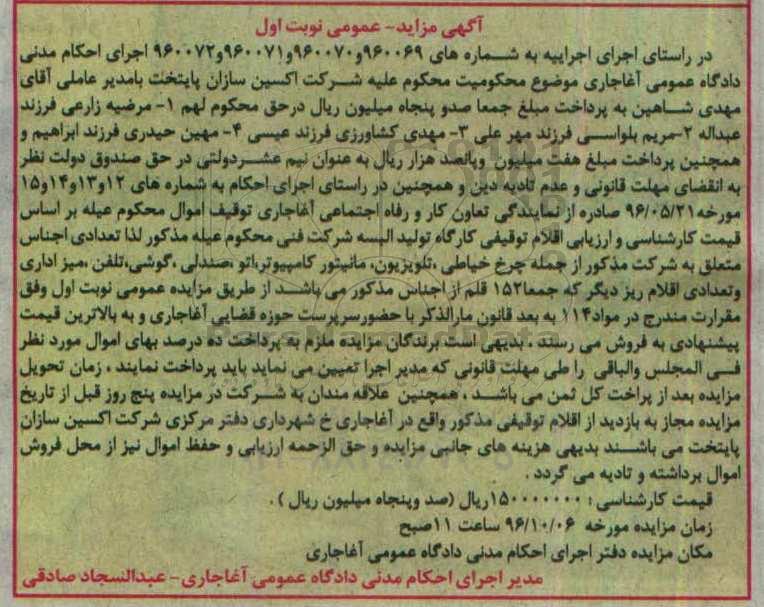 آگهی مزاید- عمومی نوبت اول
در راستای اجرای اجراییه به شماره های ۹۶۰۰۶۹و۹۶۰۰۷۰و۹۶۰۰۷۱و۹۶۰۰۷۲ اجرای احکام مدنی
دادگاه عمومی آغاجاری موضوع محکومیت محکوم علیه شرکت اکسین سازان پایتخت بامدیر عاملی آقای
مهدی شاهین به پرداخت مبلغ جمعا صدو پنجاه میلیون ریال درحق محکوم لهم ۱- مرضیه زارعی فرزند
عبداله ۲-مریم بلواسی فرزند مهر علی ۳- مهدی کشاورزی فرزند عیسی ۴- مهین حیدری فرزند ابراهیم و
همچنین پرداخت مبلغ هفت میلیون وپانصد هزار ریال به عنوان نیم عشردولتی در حق صندوق دولت نظر
به انقضای مهلت قانونی و عدم تادیه دین و همچنین در راستای اجرای احکام به شماره های ۱۲و۱۳و۱۴و۱۵
مورخه۹۶/۰۵/۲۱ صادره از نمایندگی تعاون کار و رفاه اجتماعی آغاجاری توقیف اموال محکوم عیله بر اساس
قیمت کارشناسی و ارزیابی اقلام توقیفی کارگاه تولید البسه شرکت فنی محکوم عیله مذکور لذا تعدادی اجناس
متعلق به شرکت مذکور از جمله چرخ خیاطی ،تلویزیون، مانیتور کامپیوتر،اتو ،صندلی ،گوشی،تلفن ،میز اداری
وتعدادی اقلام ریز دیگر که جمعا۱۵۲ قلم از اجناس مذکور می باشد از طریق مزایده عمومی نوبت اول وفق
مقرارت مندرج در مواد۱۱۴ به بعد قانون مارالذکر با حضورسرپرست حوزه قضایی آغاجاری و به بالاترین قیمت
پیشنهادی به فروش می رسند ، بدیهی است برندگان مزایده ملزم به پرداخت ده درصد بهای اموال مورد نظر
فی المجلس والباقی را طی مهلت قانونی که مدیر اجرا تعیین می نماید باید پرداخت نمایند ، زمان تحویل
مزایده بعد از پراخت کل ثمن می باشد ، همچنین علاقه مندان به شرکت در مزایده پنج روز قبل از تاریخ
مزایده مجاز به بازدید از اقلام توقیفی مذکور واقع در آغاجاری خ شهرداری دفتر مرکزی شرکت اکسین سازان
پایتخت می باشند بدیهی هزینه های جانبی مزایده و حق الزحمه ارزیابی و حفظ اموال نیز از محل فروش
اموال برداشته و تادیه می گردد .
قیمت کارشناسی : ۱۵۰۰۰۰۰۰۰ریال (صد وپنجاه میلیون ریال ) .
زمان مزایده مورخه ۹۶/۱۰/۰۶ ساعت ۱۱صبح
مکان مزایده دفتر اجرای احکام مدنی دادگاه عمومی آغاجاری
مدیر اجرای احکام مدنی دادگاه عمومی آغاجاری- عبدالسجاد صادقی